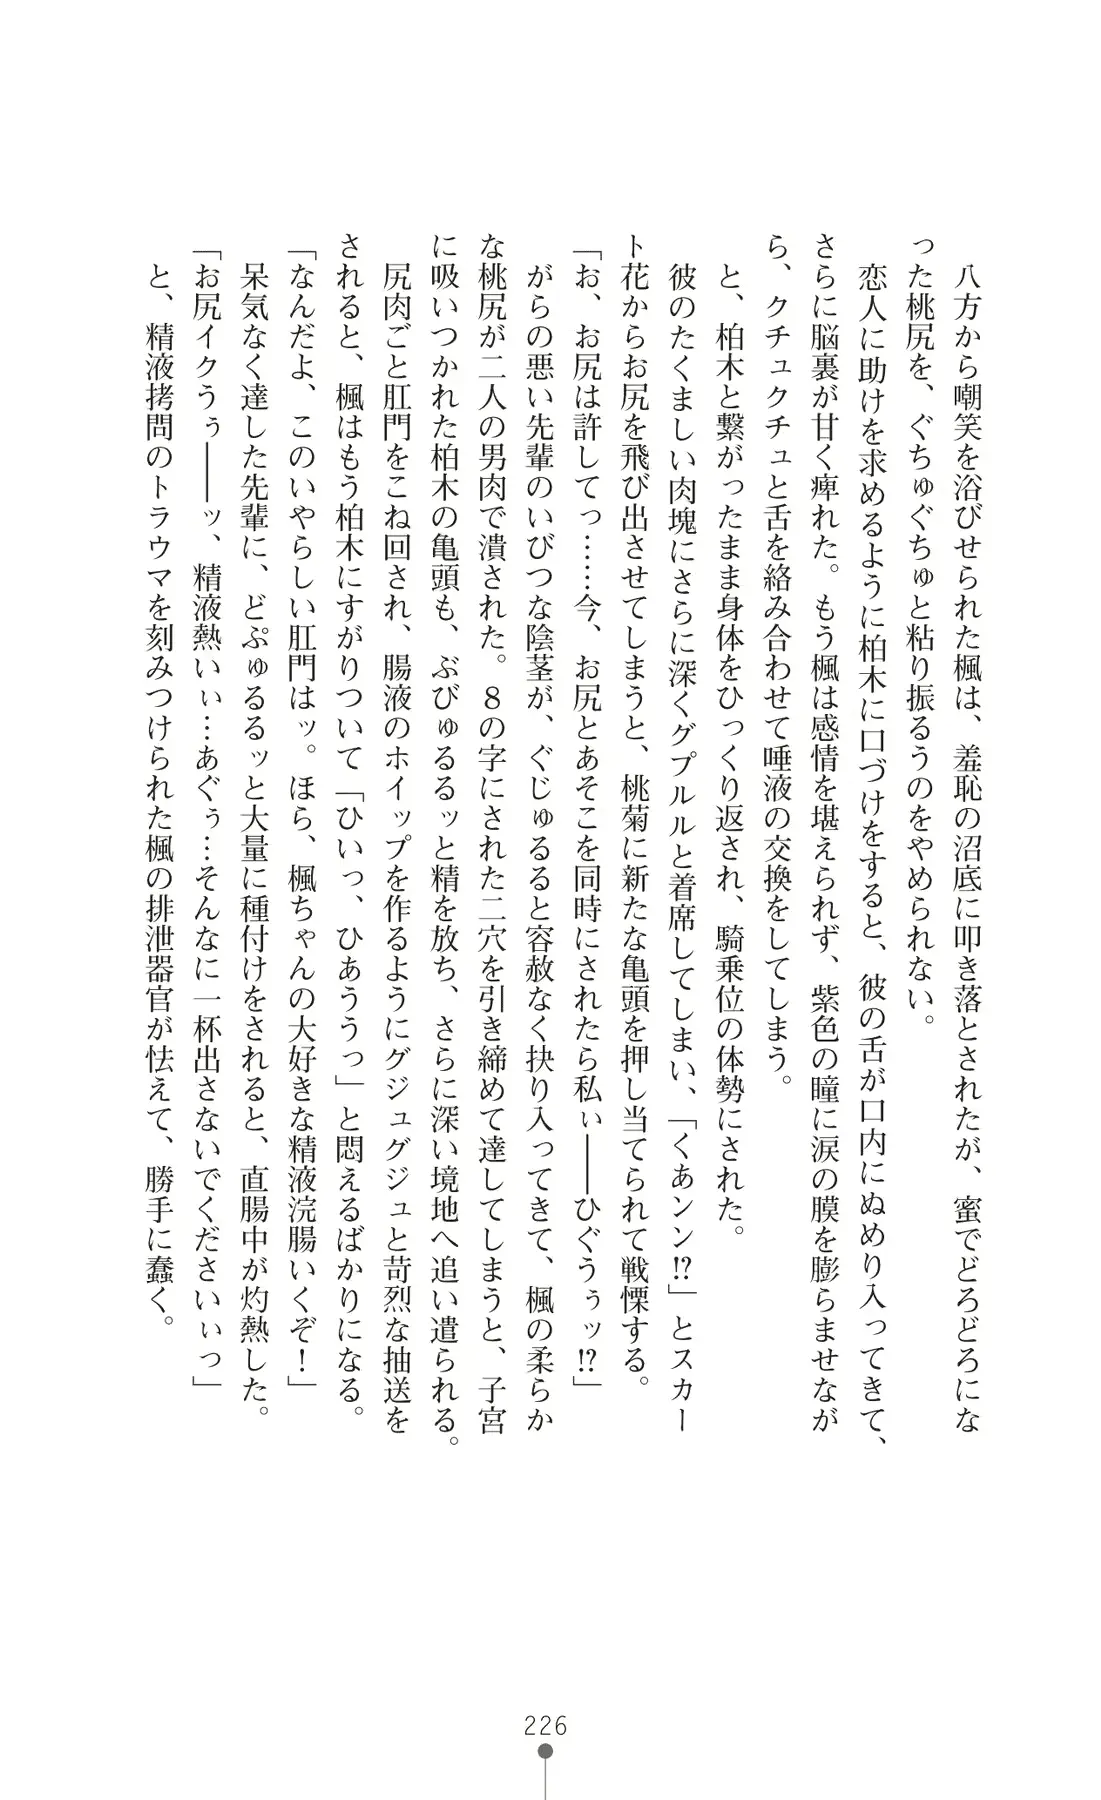 八方から嘲笑を浴びせられた楓は、羞恥の沼底に叩き落とされたが、蜜でどろどろにな
った桃尻を、ぐちゅぐちゅと粘り振るうのをやめられない。
恋人に助けを求めるように柏木に口づけをすると、彼の舌が口内にぬめり入ってきて、
さらに脳裏が甘く痺れた。もう楓は感情を堪えられず、紫色の瞳に涙の膜を膨らませなが
ら、クチュクチュと舌を絡み合わせて唾液の交換をしてしまう。
と、柏木と繋がったまま身体をひっくり返され、騎乗位の体勢にされた。
彼のたくましい肉塊にさらに深くグプルルと着席してしまい、「くあンン!?」とスカー
ト花からお尻を飛び出させてしまうと、桃菊に新たな亀頭を押し当てられて戦慄する。
「お、お尻は許してっ……今、お尻とあそこを同時にされたら私ぃ――ひぐぅぅッ!?」
がらの悪い先輩のいびつな陰茎が、ぐじゅるると容赦なく抉り入ってきて、楓の柔らか
な桃尻が二人の男肉で潰された。８の字にされた二穴を引き締めて達してしまうと、子宮
に吸いつかれた柏木の亀頭も、ぶびゅるるッと精を放ち、さらに深い境地へ追い遣られる。
尻肉ごと肛門をこね回され、腸液のホイップを作るようにグジュグジュと苛烈な抽送を
されると、楓はもう柏木にすがりついて「ひいっ、ひあううっ」と悶えるばかりになる。
「なんだよ、このいやらしい肛門はッ。ほら、楓ちゃんの大好きな精液浣腸いくぞ！」
呆気なく達した先輩に、どぷゅるるッと大量に種付けをされると、直腸中が灼熱した。
「お尻イクうぅ――ッ、精液熱いぃ…あぐぅ…そんなに一杯出さないでくださいぃっ」
と、精液拷問のトラウマを刻みつけられた楓の排泄器官が怯えて、勝手に蠢く。
226